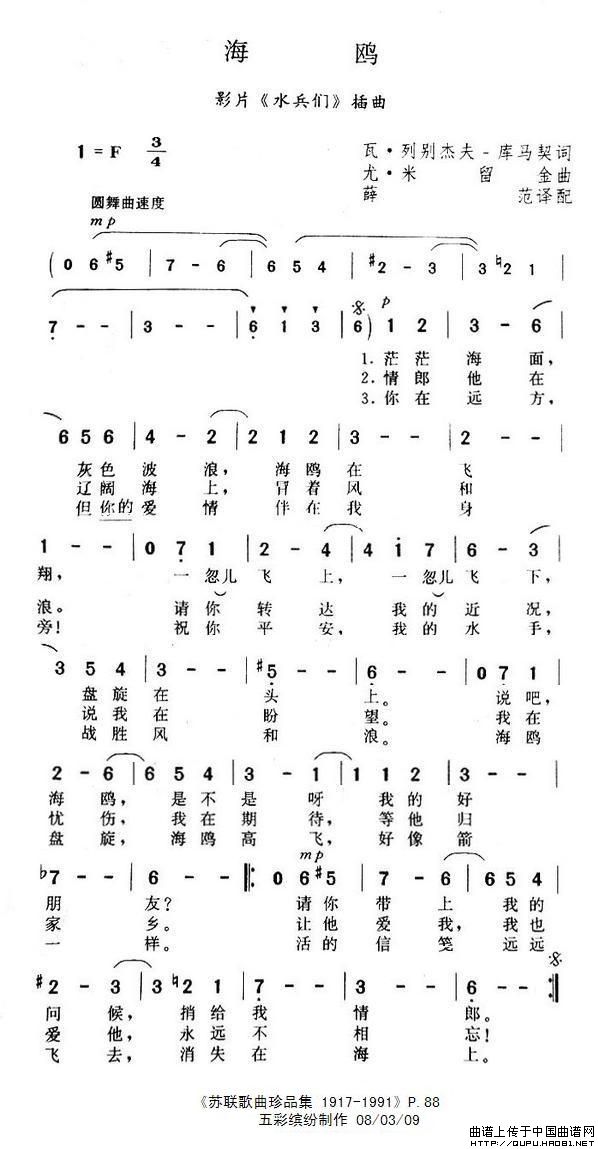 海 鸥
影片《水兵们》插曲
1 = F 3/4
瓦·列别杰夫-库马契词
尤·米留金曲
薛范译配
圆舞曲速度
mp
( 0 6 #5 | 7 - 6 | 6 5 4 | #2 - 3 | 3 ♮2 1 |
p
7 - - | 3 - - | 6 1 3 | 6 ) 1 2 | 3 - 6 |
1.茫茫海面,
2.情郎他在
3.你在远方,
6 5 6 | 4 - 2 | 2 1 2 | 3 - - | 2 - - |
灰色波浪,海鸥在飞
辽阔海上,冒着风和
但你的爱情伴在我身
1 - - | 0 7 1 | 2 - 4 | 4 1 7 | 6 - 3 |
翔,一忽儿飞上,一忽儿飞下,
浪。请你转达我的近况,
旁!祝你平安,我的水手,
3 5 4 | 3 - - | #5 - - | 6 - - | 0 7 1 |
盘旋在头上。说吧,
说我在盼望。我在
战胜风和浪。海鸥
2 - 6 | 6 5 4 | 3 - 1 | 1 1 2 | 3 - - |
海鸥,是不是呀我的好
忧伤,我在期待,等他归
盘旋,海鸥高飞,好像箭
mp
♭7 - - | 6 - - :‖: 0 6 #5 | 7 - 6 | 6 5 4 |
朋友?请你带上我的
家乡。让他爱我,我也
一样。活的信笺远远
#2 - 3 | 3 ♮2 1 | 7 - - | 3 - - | 6 - - :‖
问候,捎给我情郎。
爱他,永远不相忘!
飞去,消失在海上。
《苏联歌曲珍品集 1917-1991》P.88
五彩缤纷制作 08/03/09
曲谱上传于中国曲谱网
http://QUPU.HAO81.NET